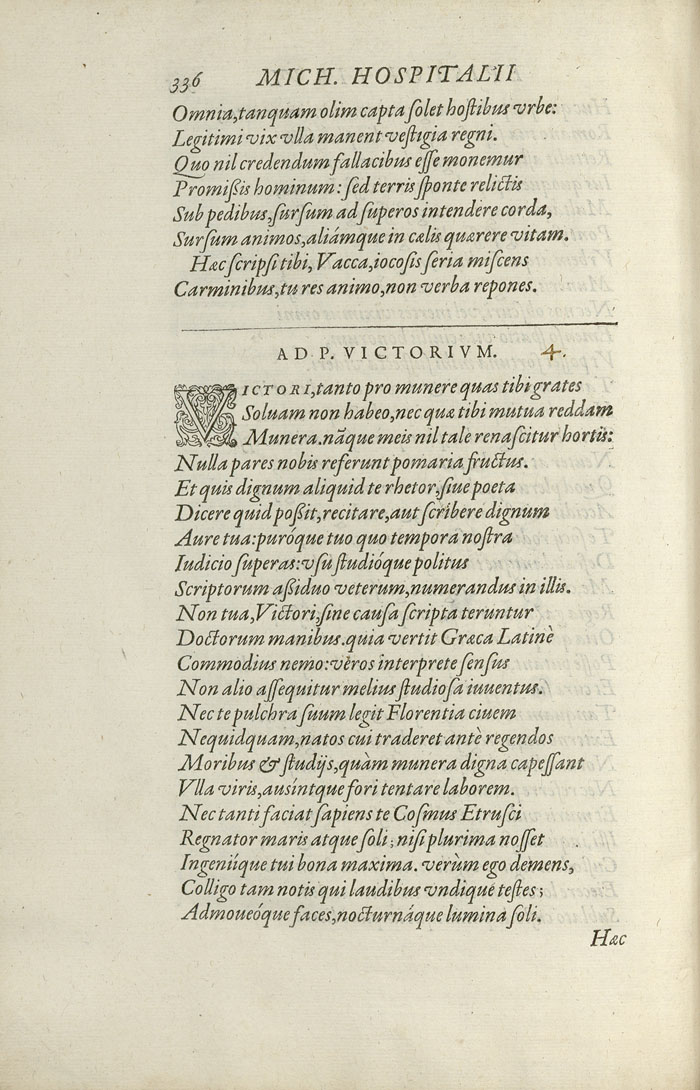 336 MICH. HOSPITALII
Omnia, tanquam olim capta ſolet hoſtibus vrbe:
Legitimi vix vlla manent veſtigia regni.
Quo nil credendum fallacibus eſſe monemur
Promiſsis hominum: ſed terris ſponte relictis
Sub pedibus, ſurſum ad ſuperos intendere corda,
Surſum animos, aliámque in cælis quærere vitam.
Hæc ſcripſi tibi, Vacca, iocoſis ſeria miſcens
Carminibus, tu res animo, non verba repones.
AD P. VICTORIVM. 4.
VICTORI, tanto pro munere quas tibi grates
Soluam non habeo, nec quæ tibi mutua reddam
Munera. nãque meis nil tale renaſcitur hortis:
Nulla pares nobis referunt pomaria fructus.
Et quis dignum aliquid te rhetor, ſiue poeta
Dicere quid poſsit, recitare, aut ſcribere dignum
Aure tua: puróque tuo quo tempora noſtra
Iudicio ſuperas: vſu ſtudióque politus
Scriptorum aſsiduo veterum, numerandus in illis.
Non tua, Victori, ſine cauſa ſcripta teruntur
Doctorum manibus. quia vertit Græca Latinè
Commodius nemo: vèros interprete ſenſus
Non alio aſſequitur melius ſtudioſa iuuentus.
Nec te pulchra ſuum legit Florentia ciuem
Nequidquam, natos cui traderet antè regendos
Moribus & ſtudijs, quàm munera digna capeſſant
Vlla viris, ausíntque fori tentare laborem.
Nec tanti faciat ſapiens te Coſmus Etruſci
Regnator maris atque ſoli; niſi plurima noſſet
Ingeniíque tui bona maxima. verùm ego demens,
Colligo tam notis qui laudibus vndique teſtes;
Admoueóque faces, nocturnáque lumina ſoli.
Hæc